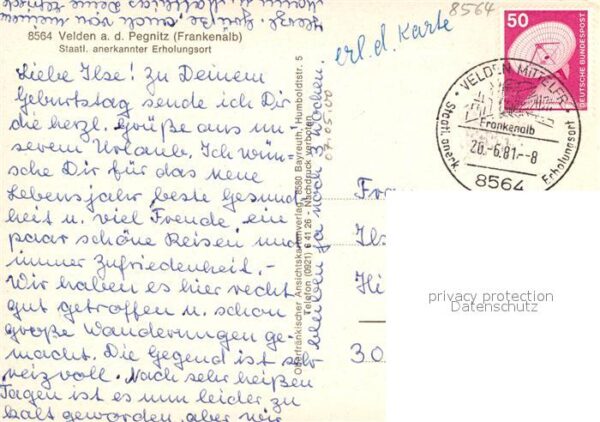 8564 Velden a. d. Pegnitz (Frankenalb)
Staatl. anerkannter Erholungsort
Liebe Ilse! Zu Deinem
Geburtstag sende ich Dir
die herzl. Grüße aus un-
serem Urlaub. Ich wün-
sche Dir für das neue
Lebensjahr beste Gesund
heit u. viel Freude, ein
paar schöne Reisen und
immer Zufriedenheit.-
Wir haben es hier recht
gut getroffen u. schon
große Wanderungen ge-
macht. Die Gegend ist sehr
reizvoll. Nach sehr heißen
Tagen ist es nun leider zu
kalt geworden, aber wir
bleiben ja noch Wochen.
Grüße auch von meinem
Deine
Oberfränkischer Ansichtskartenverlag, 8580 Bayreuth, Humboldtstr. 5
Telefon (0921) 6 41 26 - Nachdruck verboten
07.05.00
erl. d. Karte
8564
50
DEUTSCHE BUNDESPOST
VELDEN, MITTELFR
Frankenalb
26.-6.81.-8
Staatl. anerk.
Erholungsort
8564
Fra
Ils
Hi
30
privacy protection
Datenschutz